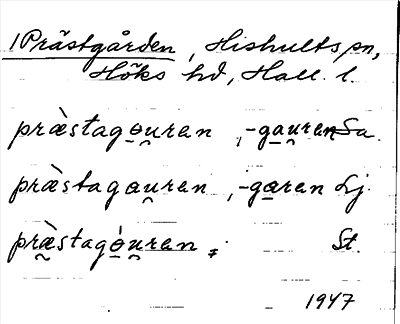 1 Prästgården, Hishults sn,
Höks hd, Hall. l.
prä̀stago̱u̯ren, -ga̱u̯ren Su.
prä̀stagau̯ren, -ga̱ren Lj.
præ̰̀stagó̱u̯ren St.
1947